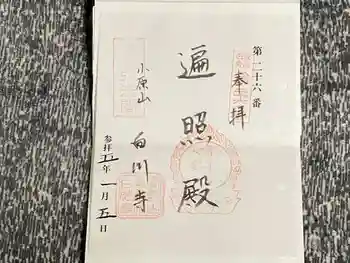 第二十六番
奉拝
遍照殿
小原山
白川寺
参拝五年一月五日